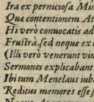 Ira ex perniciosa Mi
Que contentionem At
Hi verò conuocatis ad
Frustrà, sed neque ex
(Illi verò venerunt vin
Sermonem explicabant
Ibi tum Menelaus iub
Reditus memores esse,